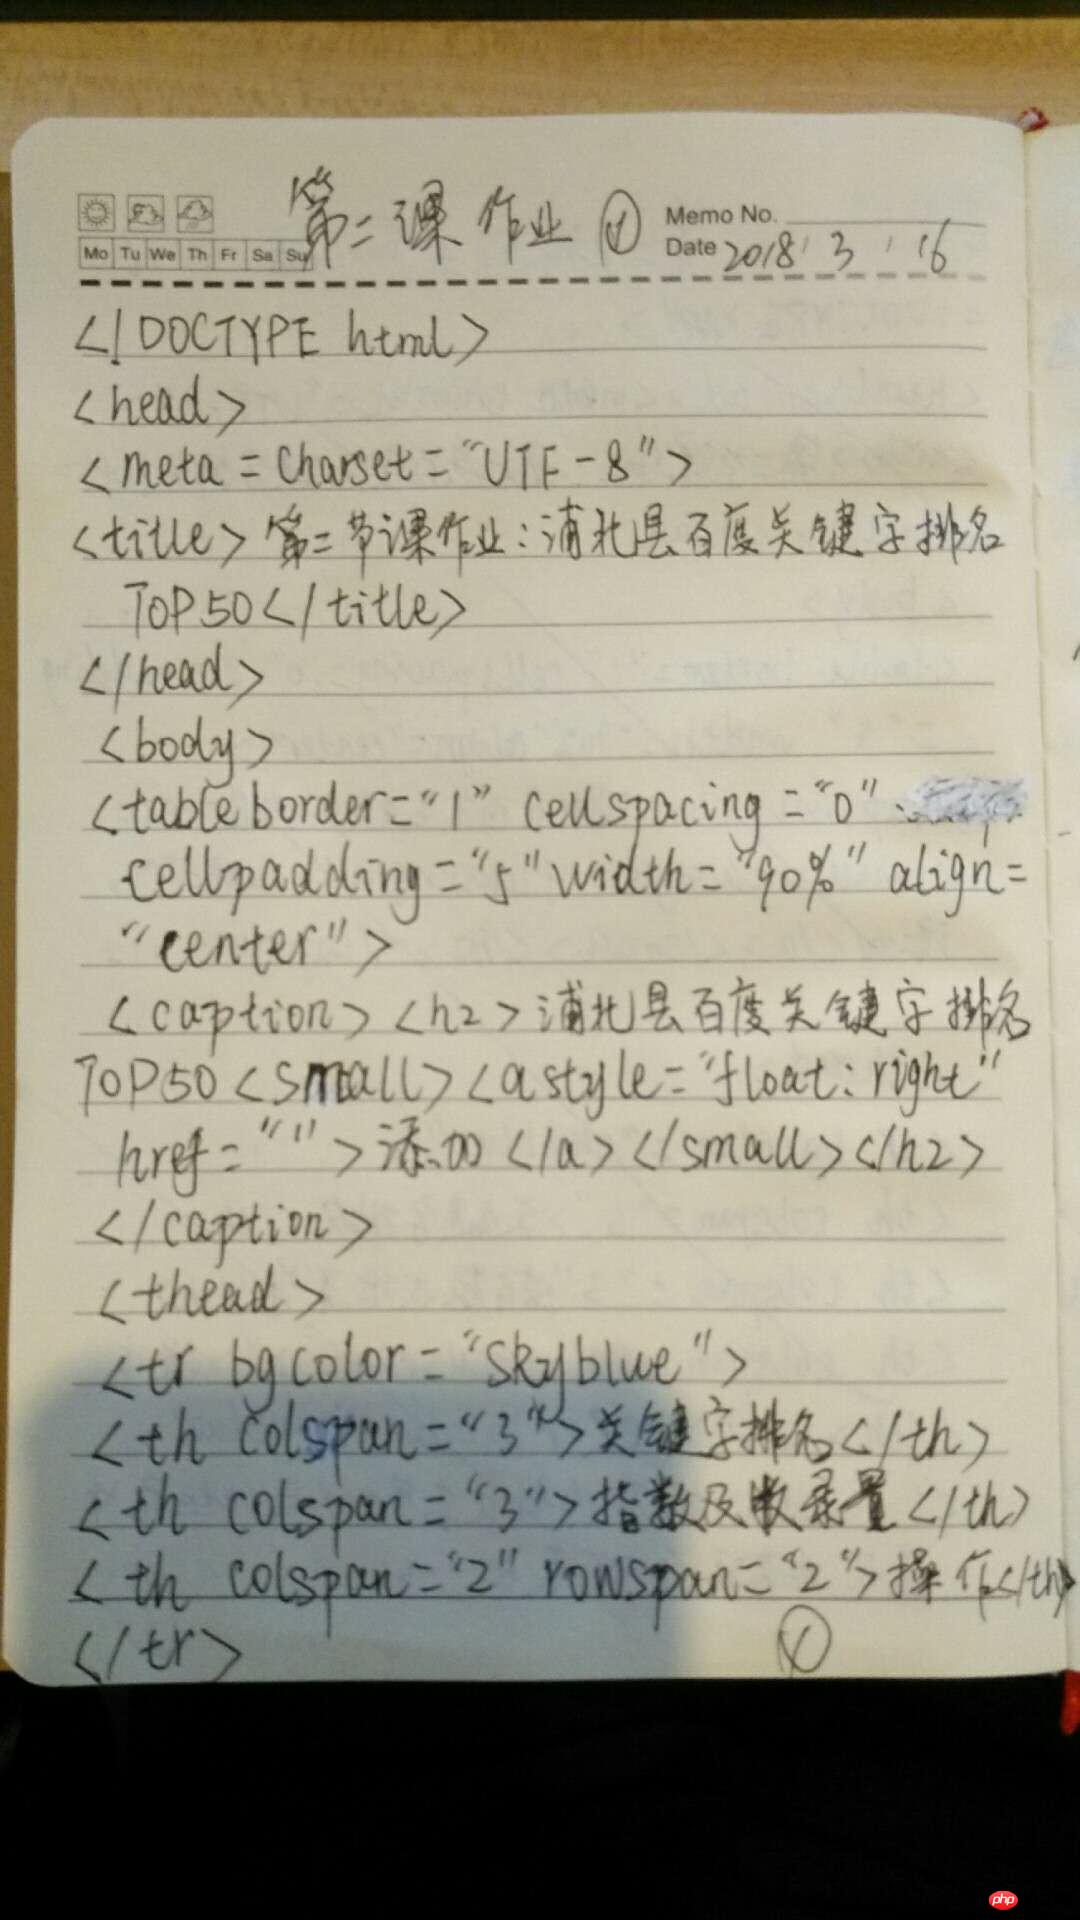 第二课作业 ①
Memo No.
Mo Tu We Th Fr Sa Su
Date 2018 3 16
<!DOCTYPE html>
<head>
<meta = charset = "UTF-8">
<title> 第二节课作业:浦北县百度关键字排名
TOP50</title>
</head>
<body>
<table border="1" cellspacing="0"
cellpadding="5" width="90%" align=
"center">
<caption> <h2> 浦北县百度关键字排名
TOP50 <small> <a style="float:right"
href=""> 添加 </a> </small> </h2>
</caption>
<thead>
<tr bgcolor="skyblue">
<th colspan="3">关键字排名</th>
<th colspan="3">指数及收录量</th>
<th colspan="2" rowspan="2">操作</th>
</tr>
php